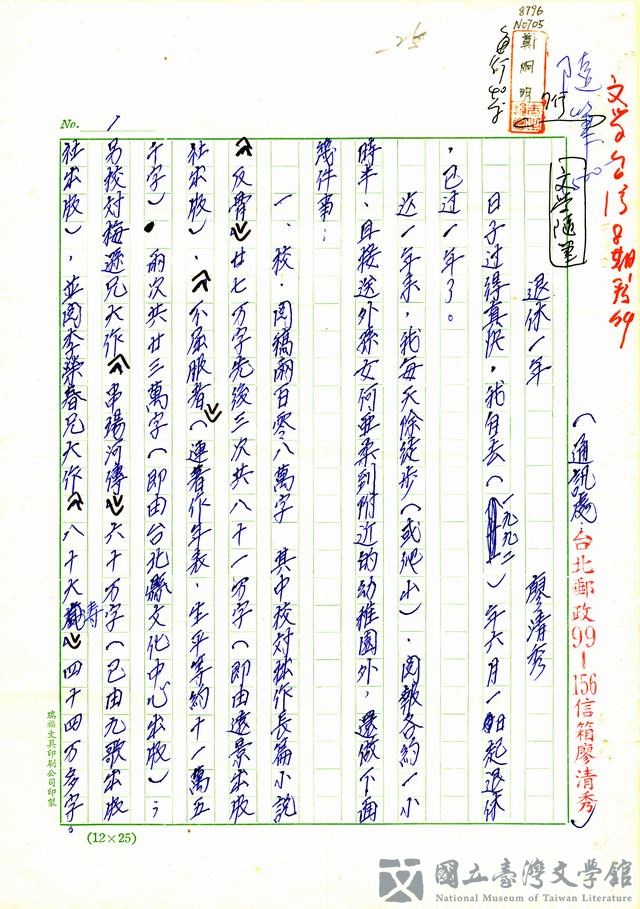 文学台湾8期
(通訊處 台北郵政99-156信箱廖清秀)
隨筆
文学隨筆
8796
N0705
鄭烱明
No. 1
退休一年
廖清秀
日子过得真快，我自去(一九九二)年六月一日起退休
，已过一年了。
这一年来，我每天除徒步(或爬山)、閱報各約一小
時半，且接送外孫女何亜柔到附近的幼稚園外，還做下面
幾件事：
一、校、閱稿兩百零八萬字 其中校対拙作長篇小說
《反骨》廿七万字先後三次共八十一万字(即由遠景出版
社出版)、《不屈服者》(連著作年表、生平等約十一萬五
千字)、兩次共廿三萬字(即由台北縣文化中心出版)；
另校対梅遜兄大作《串場河傳》六十万字(已由九歌出版
社出版)，並閱李榮春兄大作《八十大壽》四十四万多字。
瑞福文具印刷公司印製
(12×25)
國立臺灣文學館
National Museum of Taiwan Literature